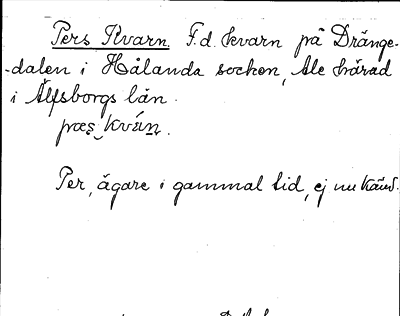 Pers Kvarn. F.d. kvarn på Dränge-
dalen i Hålanda socken, Ale härad
i Älfsborgs län.
pæṣ kván.
Per, ägare i gammal tid, ej nu känd.